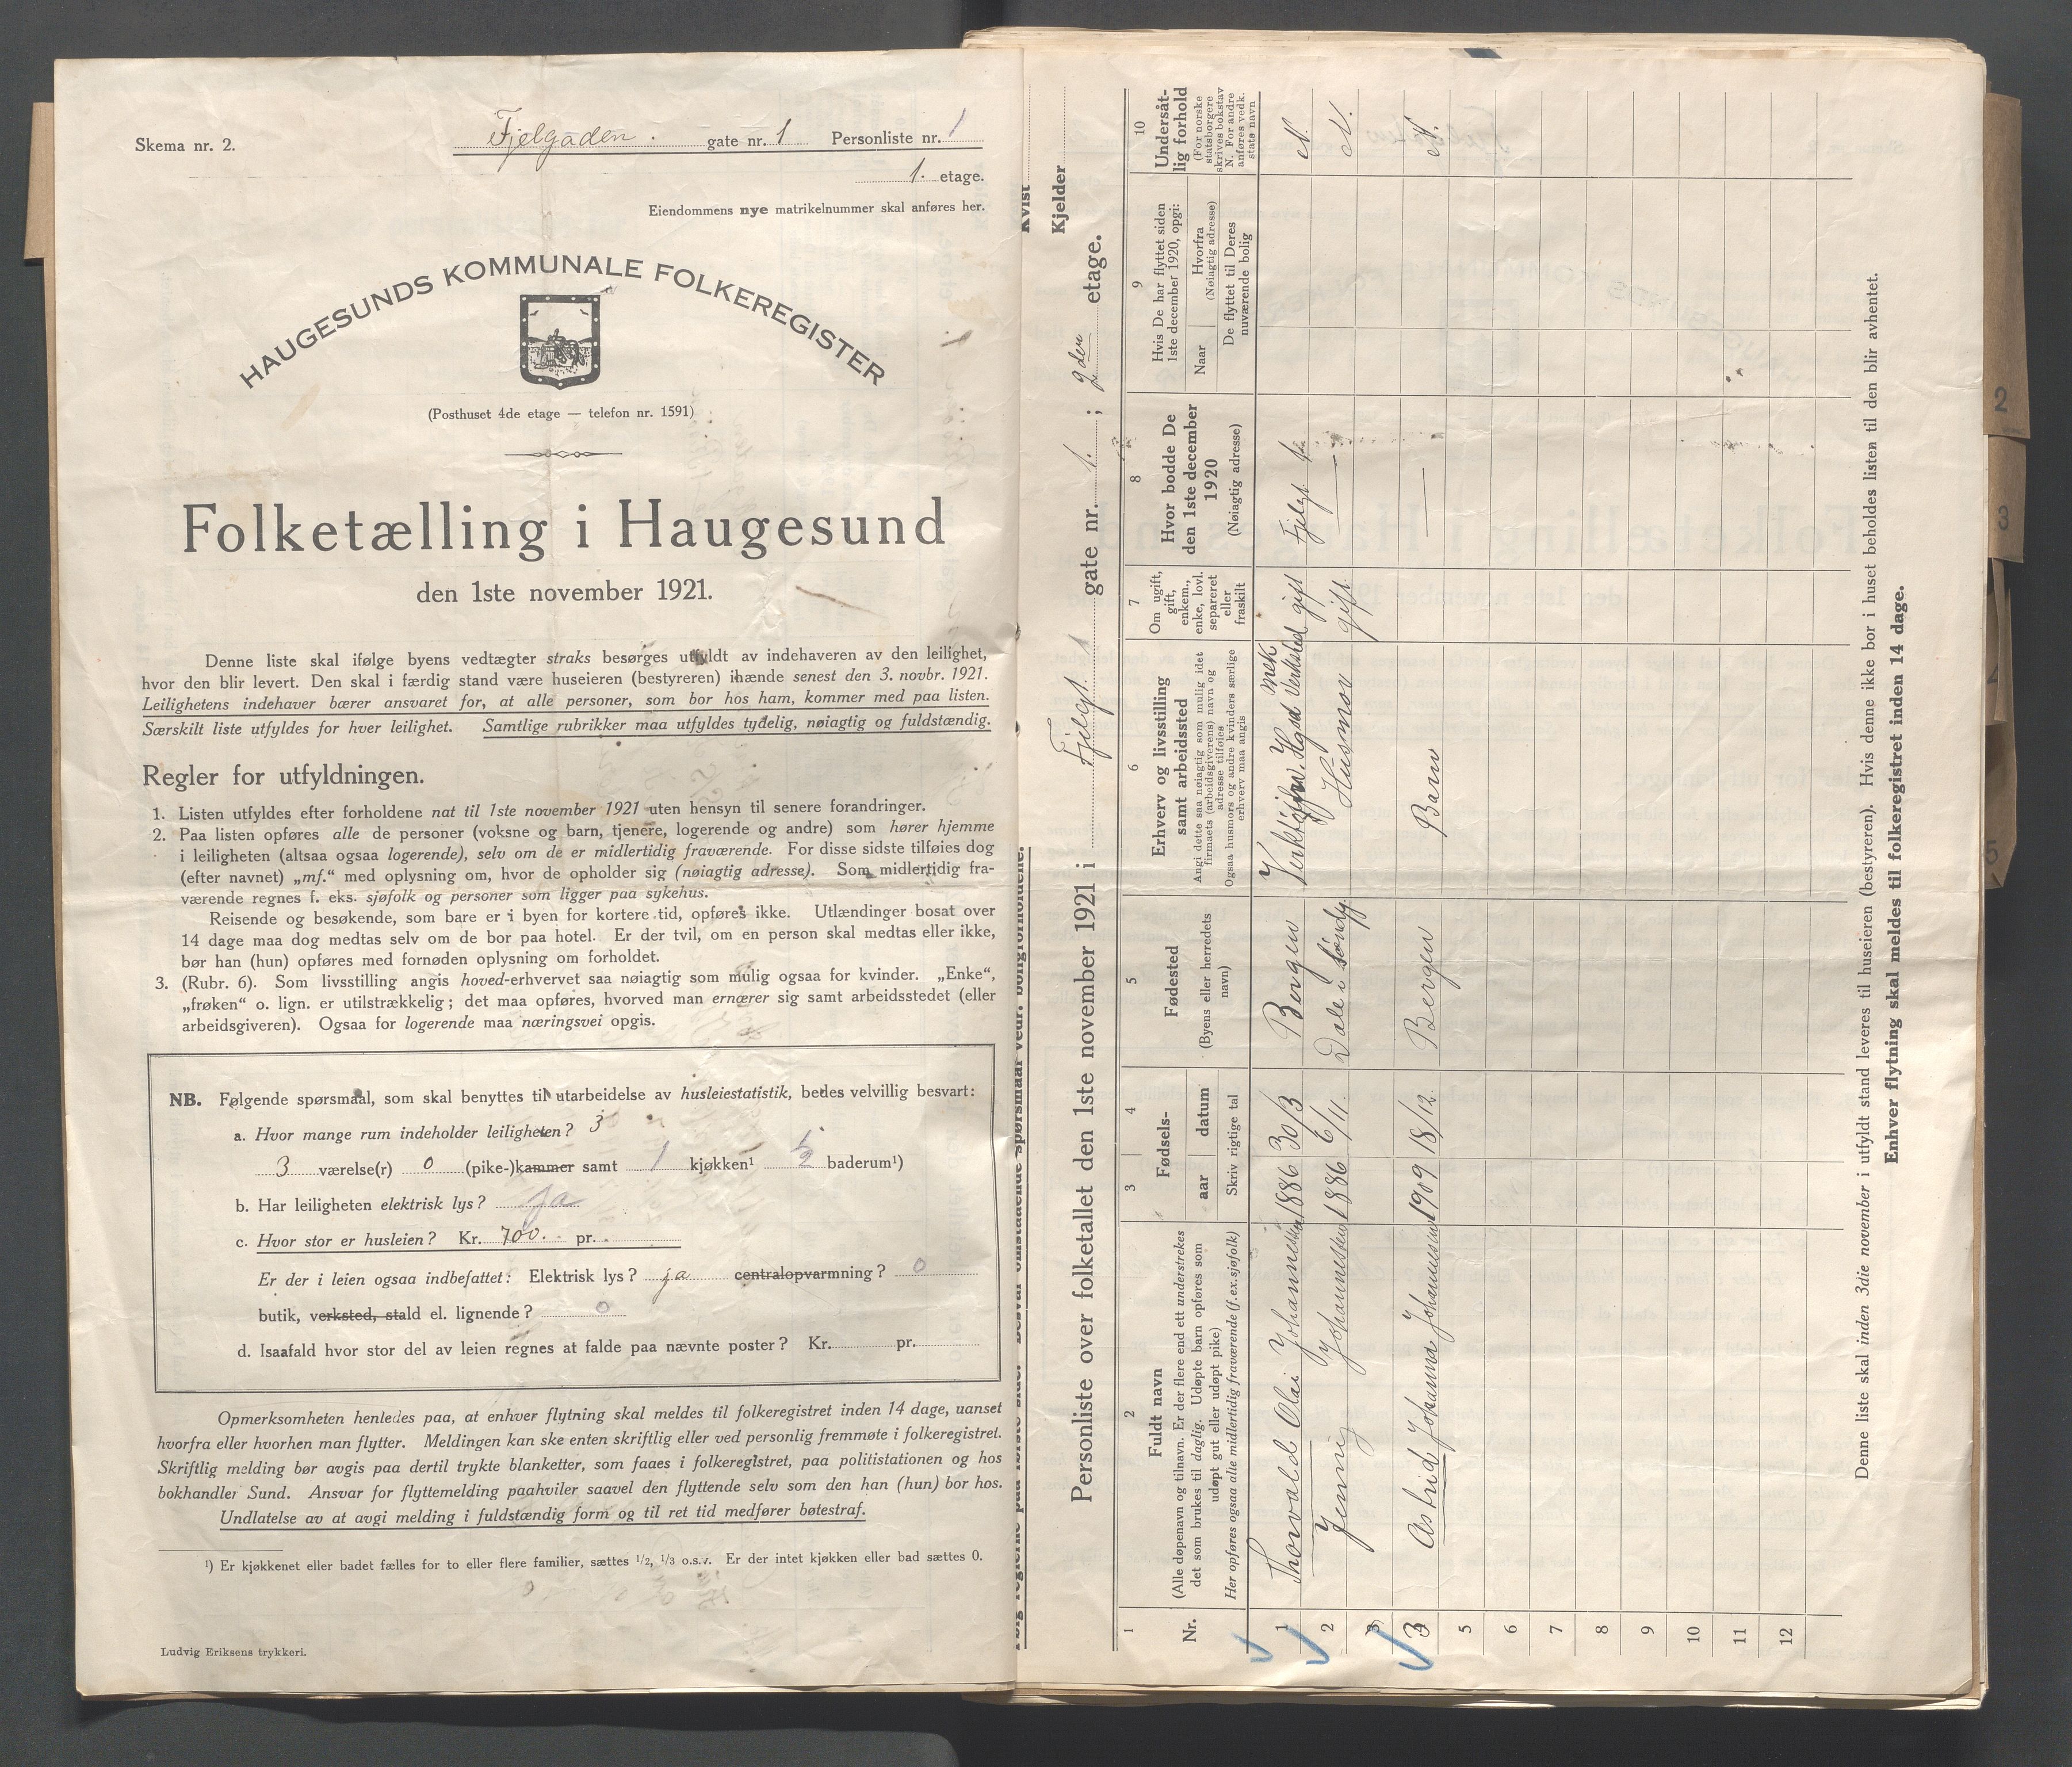 Skema nr. 2.
Fjelgaden. gate nr. 1 Personliste nr. 1
1. etage.
Eiendommens nye matrikelnummer skal anføres her.
HAUGESUNDS KOMMUNALE FOLKEREGISTER
(Posthuset 4de etage — telefon nr. 1591)
Folketælling i Haugesund
den 1ste november 1921.
Denne liste skal ifølge byens vedtægter straks besørges utfyldt av indehaveren av den leilighet,
hvor den blir levert. Den skal i færdig stand være huseieren (bestyreren) ihænde senest den 3. novbr. 1921.
Leilighetens indehaver bærer ansvaret for, at alle personer, som bor hos ham, kommer med paa listen.
Særskilt liste utfyldes for hver leilighet. Samtlige rubrikker maa utfyldes tydelig, nøiagtig og fuldstændig.
Regler for utfyldningen.
1. Listen utfyldes efter forholdene nat til 1ste november 1921 uten hensyn til senere forandringer.
2. Paa listen opføres alle de personer (voksne og barn, tjenere, logerende og andre) som hører hjemme
i leiligheten (altsaa ogsaa logerende), selv om de er midlertidig fraværende. For disse sidste tilføies dog
(efter navnet) „mf.“ med oplysning om, hvor de opholder sig (nøiagtig adresse). Som midlertidig fra-
værende regnes f. eks. sjøfolk og personer som ligger paa sykehus.
Reisende og besøkende, som bare er i byen for kortere tid, opføres ikke. Utlændinger bosat over
14 dage maa dog medtas selv om de bor paa hotel. Er der tvil, om en person skal medtas eller ikke,
bør han (hun) opføres med fornøden oplysning om forholdet.
3. (Rubr. 6). Som livsstilling angis hoved-erhvervet saa nøiagtig som mulig ogsaa for kvinder. „Enke“,
„frøken“ o. lign. er utilstrækkelig; det maa opføres, hvorved man ernærer sig samt arbeidsstedet (eller
arbeidsgiveren). Ogsaa for logerende maa næringsvei opgis.
NB. Følgende spørsmaal, som skal benyttes til utarbeidelse av husleiestatistik, bedes velvillig besvart:
a. Hvor mange rum indeholder leiligheten? 3
3 værelse(r) 0 (pike-)kammer samt 1 kjøkken¹ ½ baderum¹)
b. Har leiligheten elektrisk lys? ja
c. Hvor stor er husleien? Kr. 700. pr.
Er der i leien ogsaa indbefattet: Elektrisk lys? ja centralopvarmning? 0
butik, verksted, stald el. lignende? 0
d. Isaafald hvor stor del av leien regnes at falde paa nævnte poster? Kr. pr.
Opmerksomheten henledes paa, at enhver flytning skal meldes til folkeregistret inden 14 dage, uanset
hvorfra eller hvorhen man flytter. Meldingen kan ske enten skriftlig eller ved personlig fremmøte i folkeregistret.
Skriftlig melding bør avgis paa dertil trykte blanketter, som faaes i folkeregistret, paa politistationen og hos
bokhandler Sund. Ansvar for flyttemelding paahviler saavel den flyttende selv som den han (hun) bor hos.
Undlatelse av at avgi melding i fuldstændig form og til ret tid medfører bøtestraf.
¹) Er kjøkkenet eller badet fælles for to eller flere familier, sættes 1/2, 1/3 o.s.v. Er der intet kjøkken eller bad sættes 0.
Ludvig Eriksens trykkeri.
Kvist
Kjelder
Personliste over folketallet den 1ste november 1921 i Fjelgt. 1 gate nr. 1. ; 2den etage.
1 2 3 4 5 6 7 8 9 10
Nr.
Fuldt navn
(Alle døpenavn og tilnavn. Er der flere end ett understrekes
det som brukes til daglig. Udøpte barn opføres som
udøpt gut eller udøpt pike)
Her opføres ogsaa alle midlertidig fraværende (f.ex.sjøfolk)
Fødsels-
aar datum
Skriv rigtige tal
Fødested
(Byens eller herredets
navn)
Erhverv og livsstilling
samt arbeidssted
Angi dette saa nøiagtig som mulig idet
firmaets (arbeidsgiverens) navn og
adresse tilføies
Ogsaa husmors og andre kvinders særlige
erhverv maa angis
Om ugift,
gift,
enkem.,
enke, lovl.
separeret
eller
fraskilt
Hvor bodde De
den 1ste december
1920
(Nøiagtig adresse)
Hvis De har flyttet siden
1ste december 1920, opgi:
Naar
Hvorfra
(Nøiagtig adresse)
De flyttet til Deres
nuværende bolig
Undersåt-
lig forhold
(For norske
statsborgere
skrives bokstav
N. For andre
anføres vedk.
stats navn
1 Thorvald Olai Johannessen 1886 30/3 Bergen Hgsd mek Verksted gift Fjelgt. N.
2 Jenny Johannessen 1886 6/11. Dale i Søndfj. Husmor gift. — N.
3 Astrid Johanna Johannessen 1909 18/12. Bergen Barn — N.
5
6
7
8
9
10
11
12
Denne liste skal inden 3die november i utfyldt stand leveres til huseieren (bestyreren). Hvis denne ikke bor i huset beholdes listen til den blir avhentet.
Enhver flytning skal meldes til folkeregistret inden 14 dage.
2
3
5